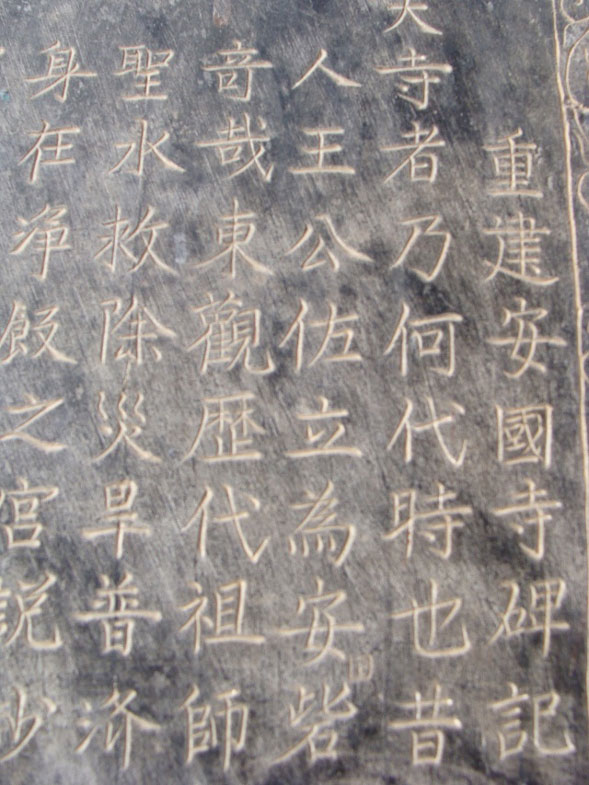 重建安國寺碑記
寺者乃何代時也昔
人王公佐立為安砦
音哉東觀歷代祖師
聖水救除災旱普济
身在淨飯之宮說